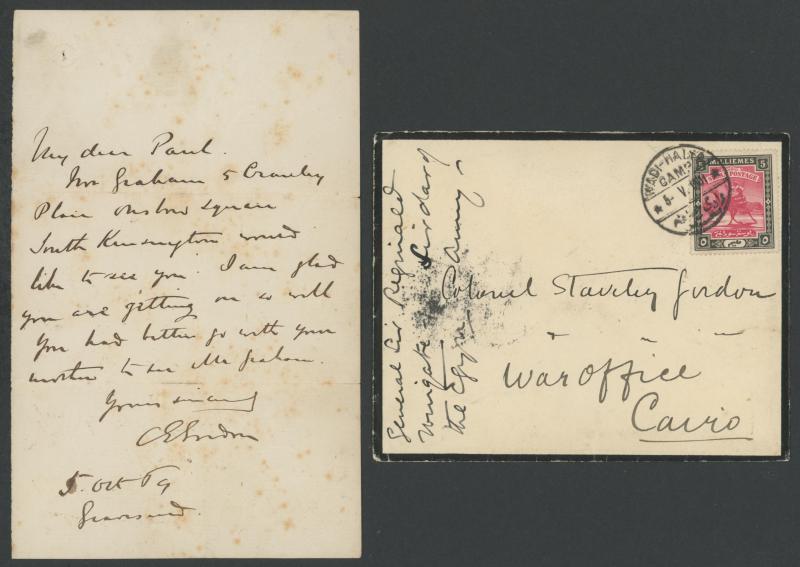 My dear Paul.
Mrs Graham 5 Cranley
Place Onslow Square
South Kensington would
like to see you. I am glad
you are getting on so well
You had better go with your
mother to see Mr Graham.
Yours sincerely
C E Gordon
5. Oct 69
Gravesend
General Sir Reginald
Wingate Sirdar of
the Egypn Army
WADI-HALFA
CAMP
5 MILLIEMES 5
POSTAGE
Colonel Staveley Gordon
War Office
Cairo